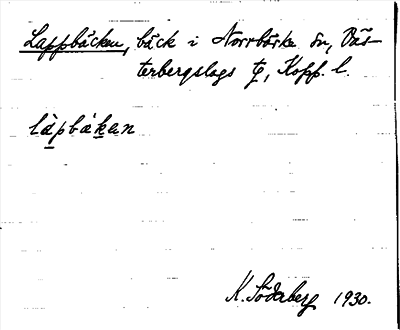 Lappbäcken, bäck i Norrbärke sn, Väs-
terbergslags tg, Kopp. l.
làpbäkan
K. Söderberg 1930.